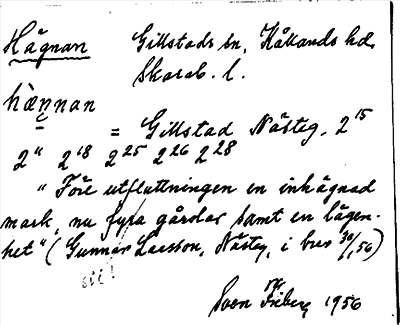 Hägnan Gillstads sn, Kållands hd,
Skarab. l.
hæ̀ṇnan
= Gillstad Nästeg. 2¹⁵
2" 2¹⁸ 2²⁵ 2²⁶ 2²⁸
"Före utfluttningen en inhägnad
mark, nu fyra gårdar samt en lägen-
het" (Gunnar Larsson, Nästeg, i brev 30/1, 56)
sic!
Sven Friberg 1956